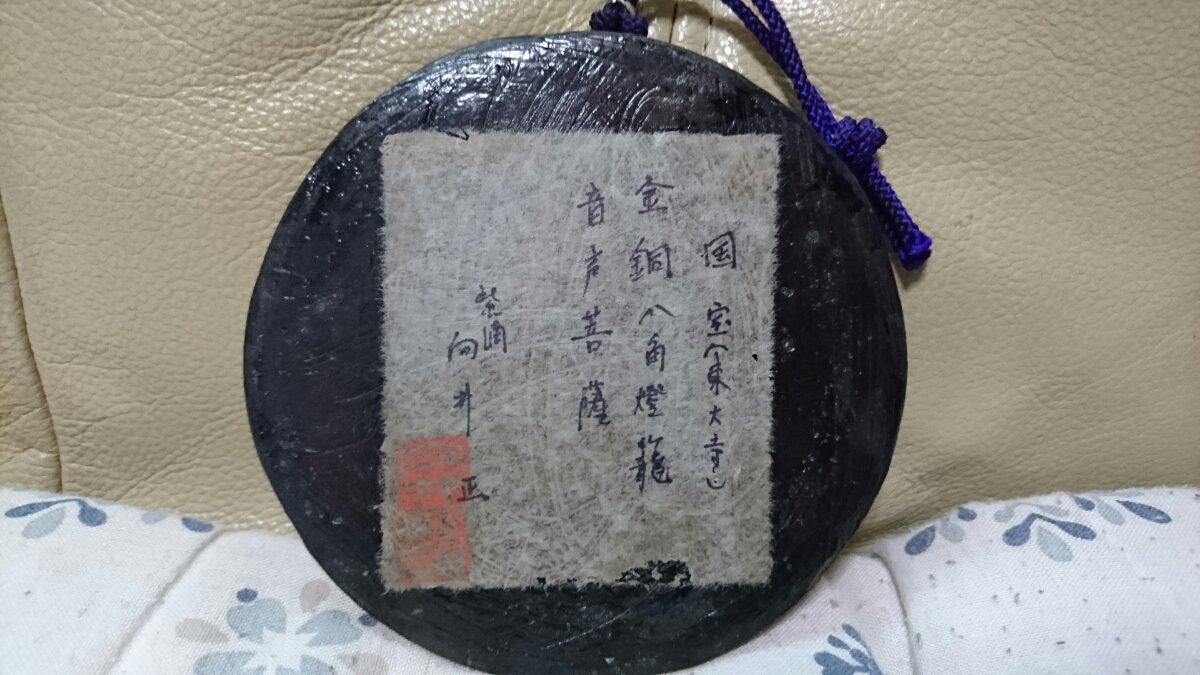 国宝(東大寺)
金銅八角燈籠
音声菩薩
向井正